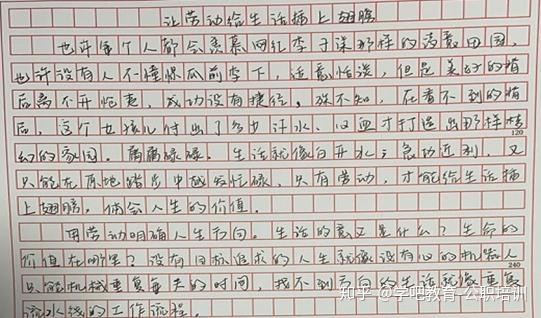 让劳动给生活插上翅膀
也许每个人都会羡慕网红李子柒那样的诗意田园,
也许没有人不憧憬瓜前李下,适意恬淡,但是美好的背
后离不开炮,成功没有捷径。殊不知,在看不到的背
后,这个女孩儿付出了多少汗水、心血才打造出那样梦
120
幻的家园。庸庸碌碌,生活就像白开水;急功近利,又
只能在原地踏步中越发忙碌,只有劳动,才能给生活插
上翅膀,领会人生的价值。
用劳动明确人生方向。生活的意义是什么?生命的
价值在哪里?没有目标追求的人生就像没有心的机器人
240
只能机械重复每天的时间,找不到方向的生活就像重复
流水线的工作流程。
知乎 @学吧教育-公职培训